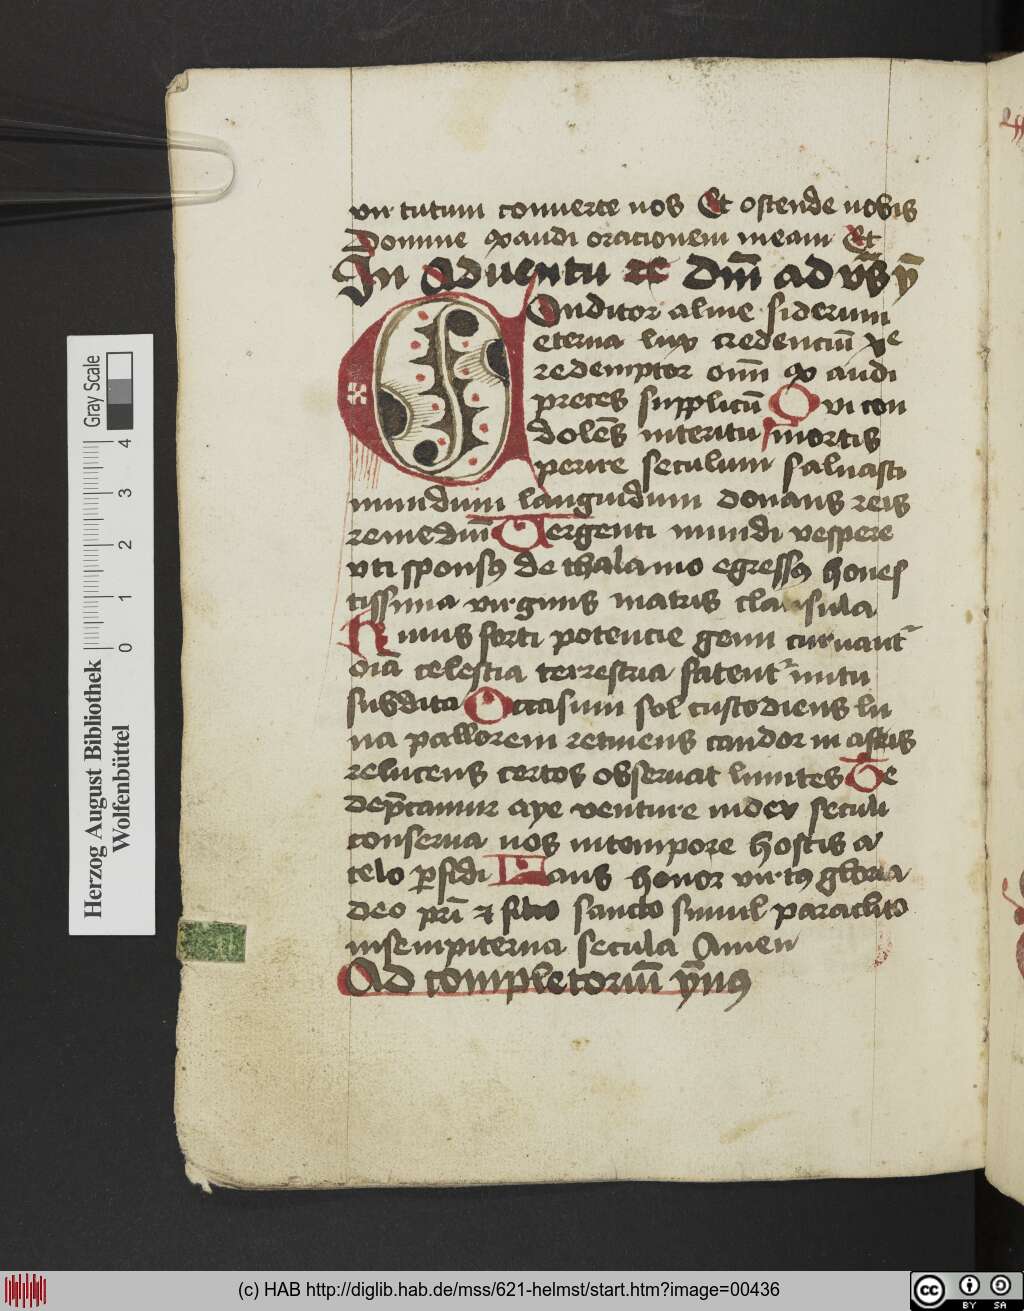 virtutum conuerte nos Et ostende nobis
Domine exaudi oracionem meam Et
In Aduentu dn̄i ad vs̄ ȳ
Conditor alme siderum
eterna lux credenciū xp̄e
redemptor om̄i ex audi
preces supplicū Qui con
dolēs interitu mortis
perire seculum saluasti
mundum languidum donans reis
remediū Vergenti mundi vespere
vti sponsꝯ de thalamo egressꝯ hones
tissima virginis matris clausula
Cuius forti potencie genu curuant᷑
oīa celestia terrestria fatent᷑ nutu
subdita Occasum sol custodiens lu
na pallorem retinens candor in astris
relucens certos obseruat limites Te
dep̄camur aye venture iudex seculi
conserua nos in tempore hostis a
telo ꝑfidi Laus honor virtꝯ gloria
deo pr̄i ⁊ filio sancto simul paraclito
in sempiterna secula Amen
Ad completoriū ȳnꝯ
Gray Scale
0 1 2 3 4
Herzog August Bibliothek
Wolfenbüttel
(c) HAB http://diglib.hab.de/mss/621-helmst/start.htm?image=00436
cc BY SA